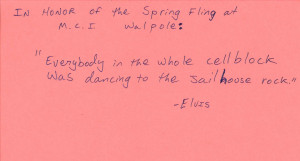 IN HONOR of the Spring Fling at
M.C.I Walpole:
"Everybody in the whole cellblock
Was dancing to the Jailhouse rock."
-Elvis